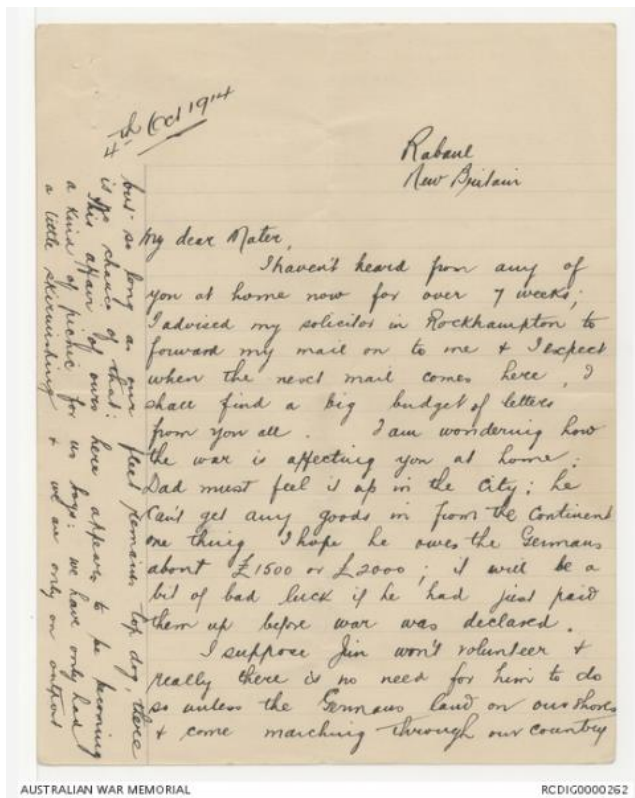 4th Oct 1914
Rabaul
New Britain
My dear Mater,
I haven't heard from any of
you at home now for over 7 weeks;
I advised my solicitor in Rockhampton to
forward my mail on to me & I expect
when the next mail comes here, I
shall find a big budget of letters
from you all. I am wondering how
the war is affecting you at home:
Dad must feel it up in the City; he
can't get any goods in from the Continent
one thing I hope he owes the Germans
about £1500 or £2000; it will be a
bit of bad luck if he had just paid
them up before war was declared.
I suppose Jim won't volunteer &
really there is no need for him to do
so unless the Germans land on our shores
& come marching through our country
but so long as our fleet remains top dog, there
is no chance of that:
This affair of ours here appears to be becoming
a kind of picnic for us boys: we have only had
a little skirmishing & we are only on outpost
AUSTRALIAN WAR MEMORIAL
RCDIG0000262